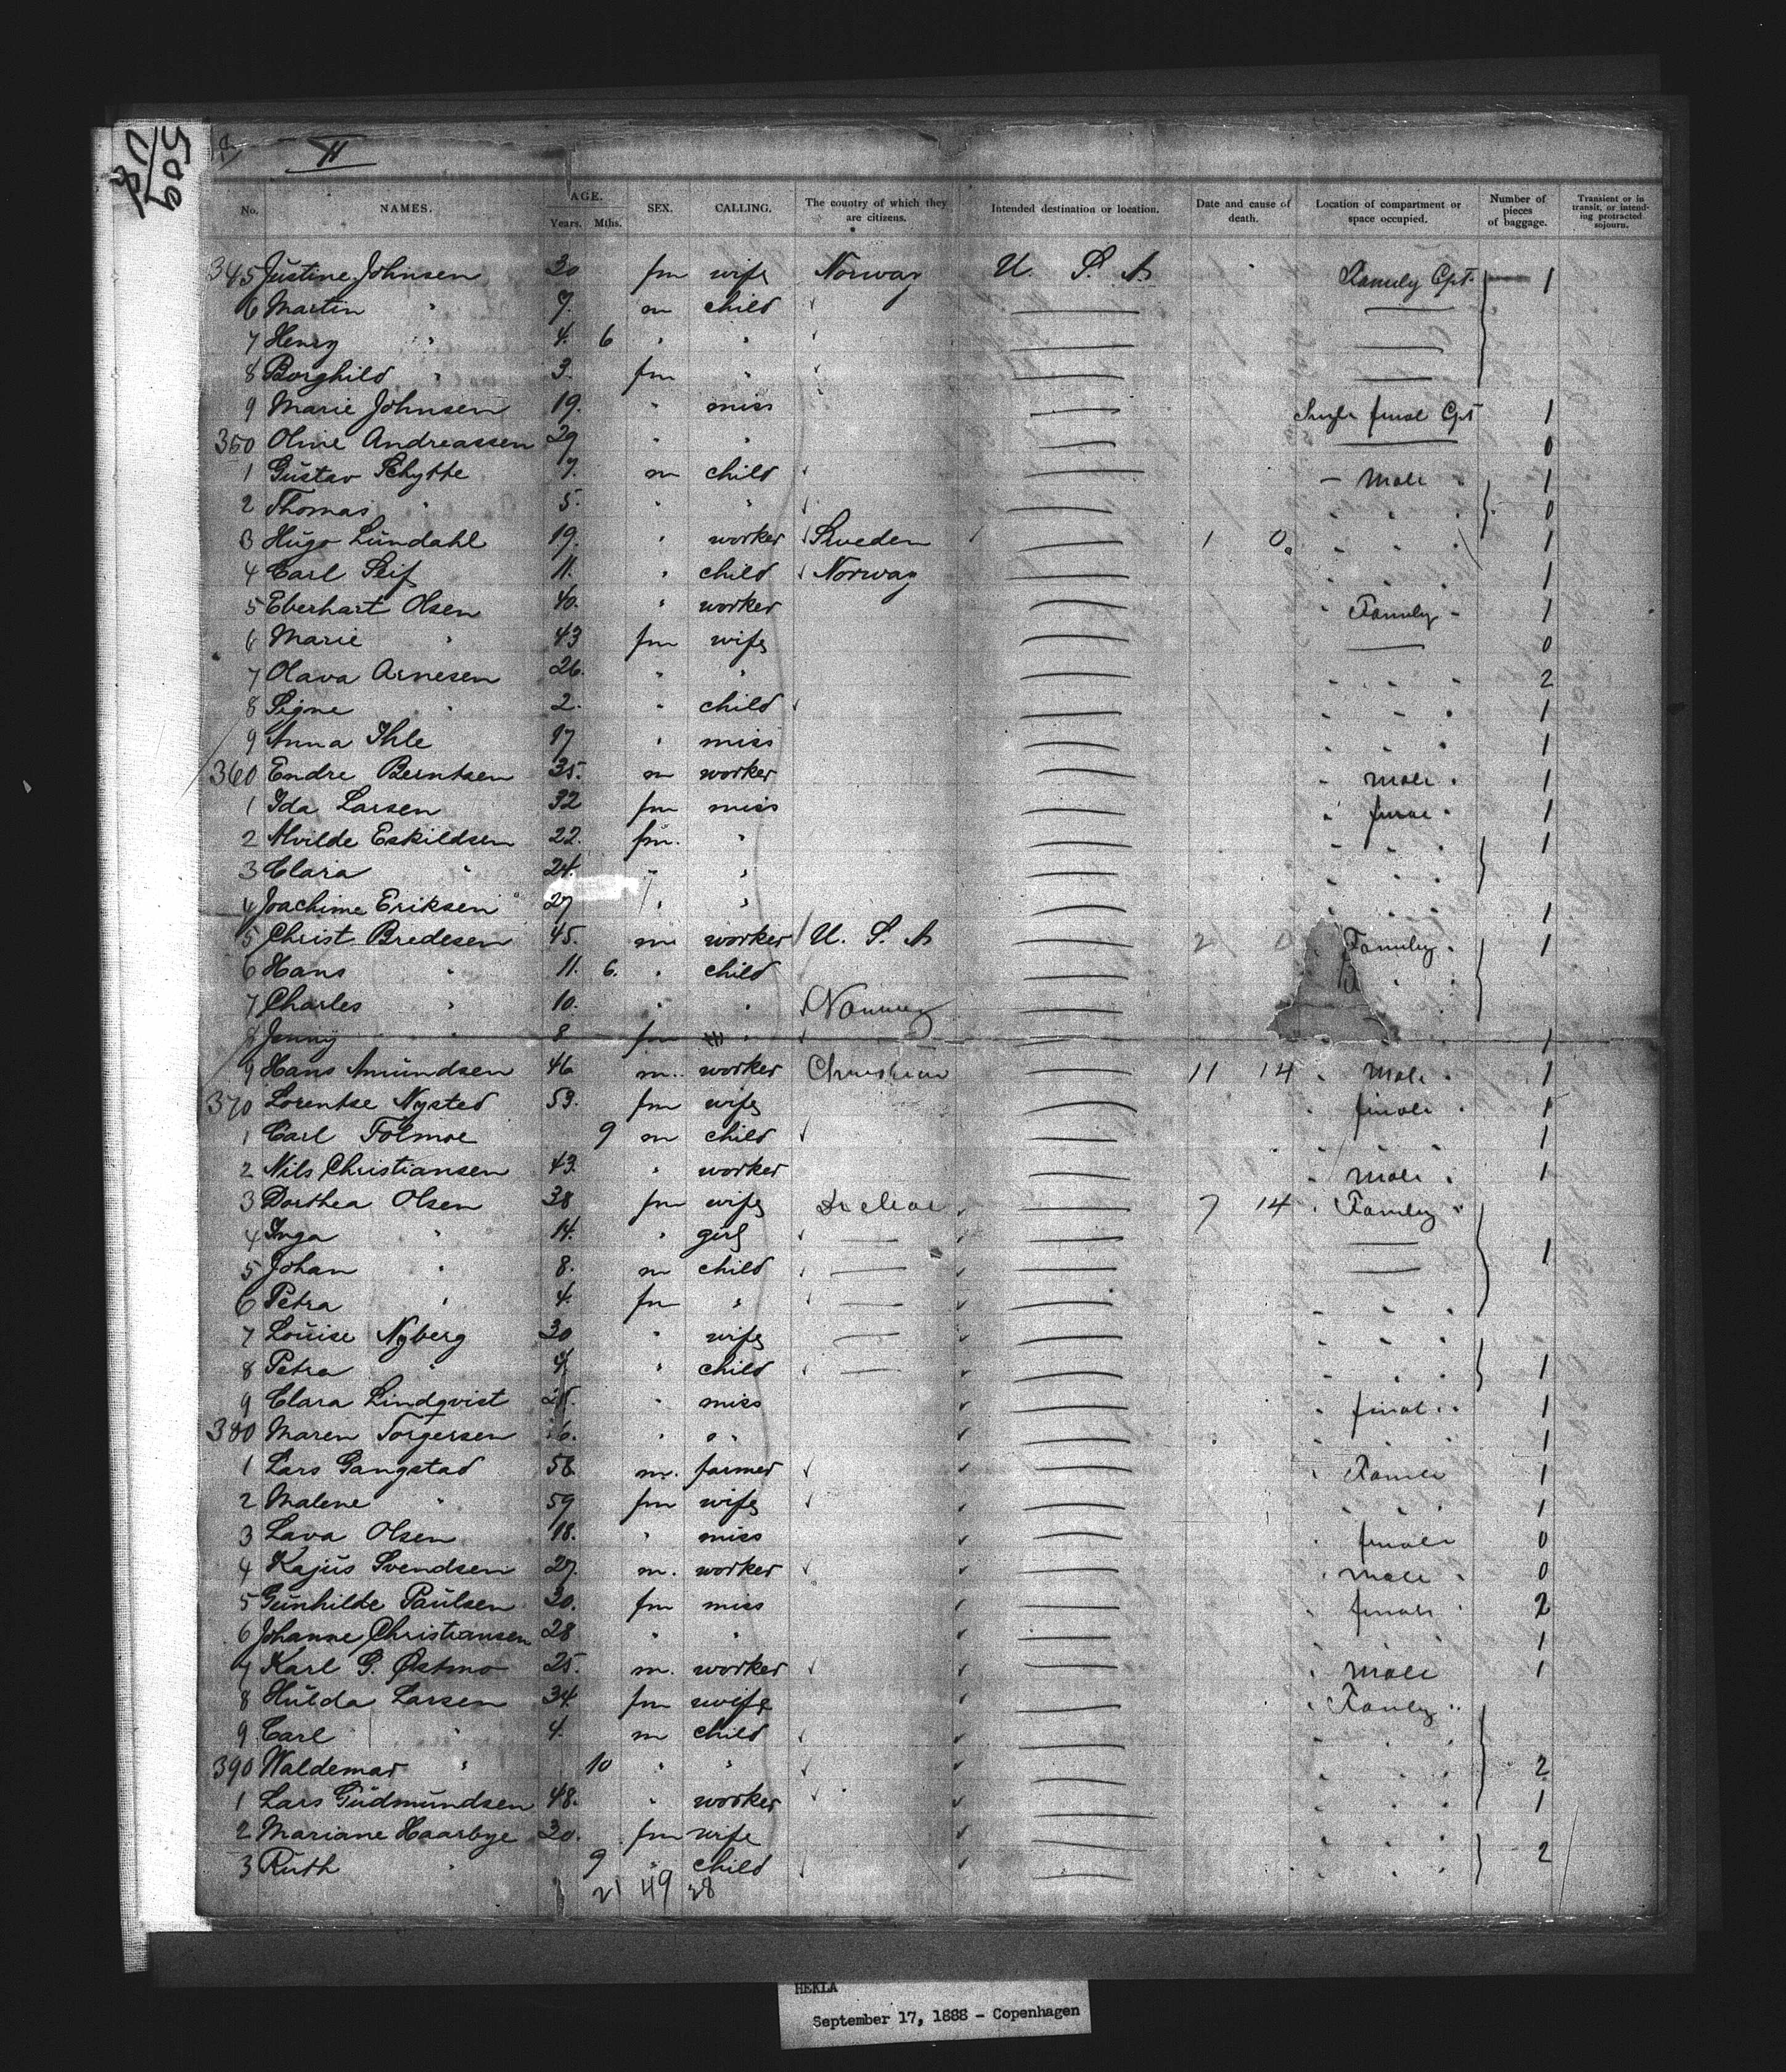 509
II
No. NAMES. AGE. Years. Mths. SEX. CALLING. The country of which they are citizens. Intended destination or location. Date and cause of death. Location of compartment or space occupied. Number of pieces of baggage. Transient or in transit, or intending protracted sojourn.
345 Justine Johnsen 30 fm wife Norway U. S. A. Family Cpt. 1
6 Martin " 7. m child
7 Henry " 4. 6 " "
8 Borghild " 3. fm "
9 Marie Johnsen 19. " miss Single female Cpt 1
350 Oline Andreassen 29 " " 0
1 Gustav Schytte 7. m child - Male " 1
2 Thomas " 5. " " " " " 0
3 Hugo Lundahl 19. " worker Sweden 1 0 " " " 1
4 Carl Leif 11. " child Norway " " " 1
5 Eberhart Olsen 40. " worker " Family - 1
6 Marie " 43 fm wife 0
7 Olava Arnesen 26. " " " " " 2
8 Signe " 2. " child " " " 1
9 Anna Ihle 17 " miss " " " 1
360 Endre Berntsen 35. m worker " male " 1
1 Ida Larsen 32 fm miss " female " 1
2 Alvilde Eskildsen 22. fm. " " " " 1
3 Clara " 24. " " " " "
4 Joachime Eriksen 27 " " " " " 1
5 Christ Bredesen 45. m worker U. S. A. 2 0 " Family " 1
6 Hans " 11. 6. " child " "
7 Charles " 10. " " Norway "
8 Jenny " 8 fm " " " 1
9 Hans Amundsen 46 m. worker 11 14 " Male " 1
370 Lorentse Nysted 53. fm wife " female " 1
1 Carl Tolmoe 9 m child " " " 1
2 Nils Christiansen 43. " worker " Male " 1
3 Dorthea Olsen 38 fm wife 7 14 " Family "
4 Inga " 14. " girl 1
5 Johan " 8. m child
6 Petra " 4. fm " " " "
7 Louise Nyberg 30 " wife " " "
8 Petra " 4. " child " " " 1
9 Clara Lindqvist " miss " female " 1
380 Maren Torgersen " " " " " 1
1 Lars Gangstad 58 m. farmer " Family 1
2 Malene " 59 fm wife " " " 1
3 Lava Olsen 18. " miss " female 0
4 Kajus Svendsen 27. m. worker " Male " 0
5 Gunhilde Paulsen 30. fm miss " female " 2
6 Johanne Christiansen 28 " " " " " 1
7 Karl G. Østmo 25. m. worker " Male 1
8 Hulda Larsen 34. fm wife " Family "
9 Carl " 4. m child " " "
390 Waldemar " 10 " " " " " 2
1 Lars Gudmundsen 48. " worker " " " 1
2 Mariane Haarbye 30. fm wife " " "
3 Ruth " 9 " child " " " 2
21 49 28
HEKLA
September 17, 1888 - Copenhagen